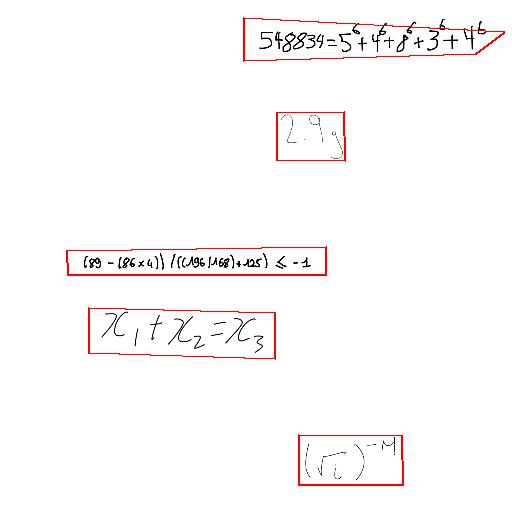 548834=5⁶+4⁶+8⁶+3⁶+4⁶
2.9g
(89-(86×4))/((196/168)+125)≤-1
x₁+x₂=x₃
(√i)⁻ᴹ